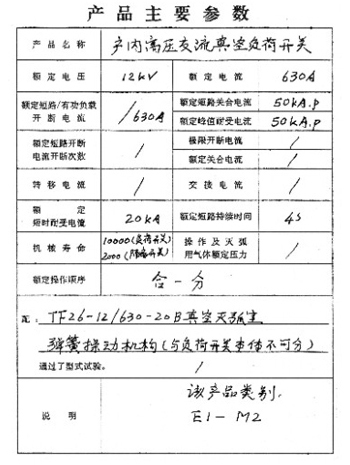 产品主要参数
产品名称 户内高压交流真空负荷开关
额定电压 12kV 额定电流 630A
额定短路/有功负载开断电流 /630A 额定短路关合电流 50kA.p
额定峰值耐受电流 50kA.p
额定短路开断电流开断次数 / 极限开断电流 /
额定关合电流 /
转移电流 / 交接电流 /
额定短时耐受电流 20kA 额定短路持续时间 4S
机械寿命 10000(负荷开关) 2000(隔离开关) 操作及灭弧用气体额定压力 /
额定操作顺序 合-分
配: TF26-12/630-20B真空灭弧室
弹簧操动机构(与负荷开关本体不可分)
通过了型式试验。 /
说明 该产品类别.
E1-M2